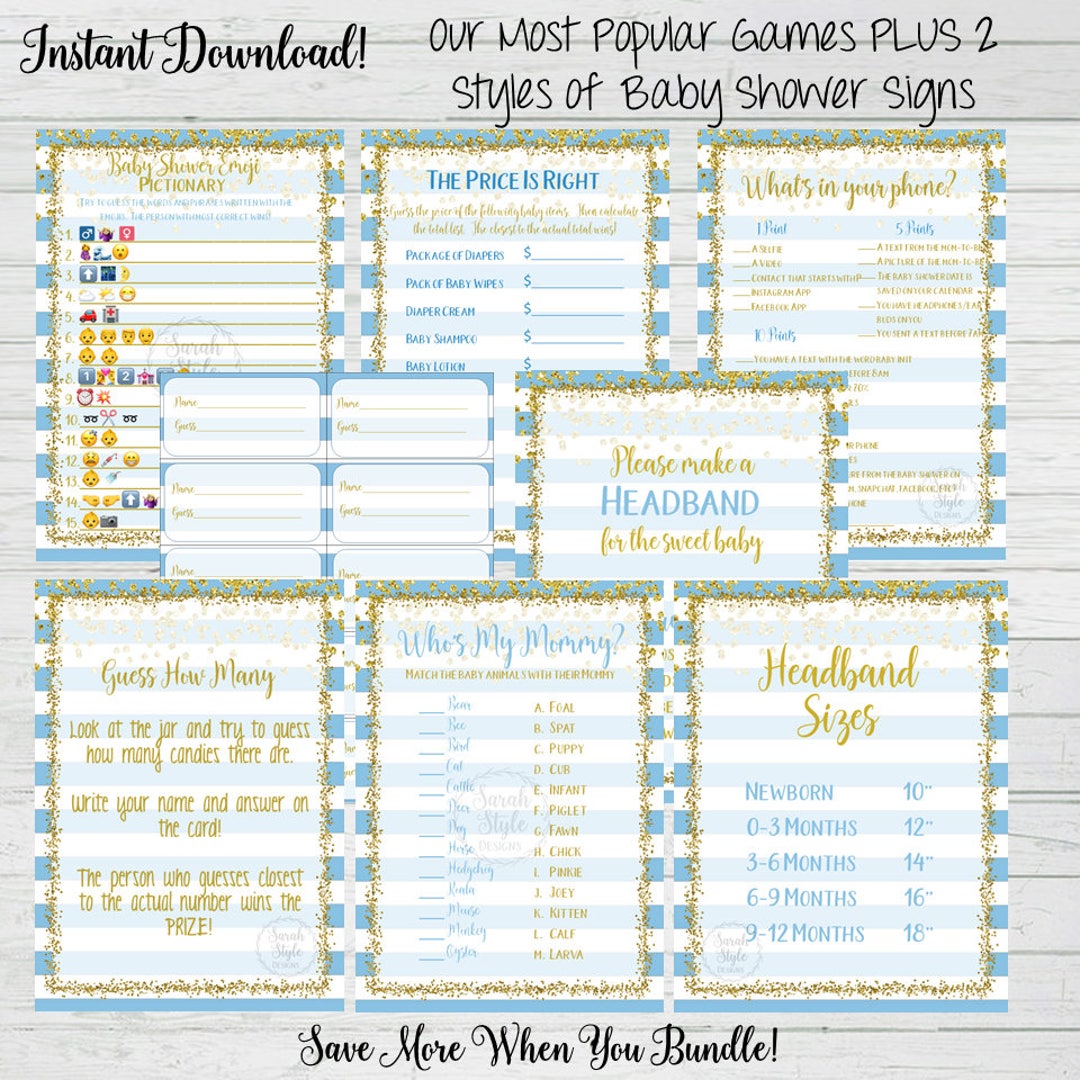 Instant Download!
Our Most Popular Games PLUS 2
Styles of Baby Shower Signs
Baby Shower Emoji
Pictionary
Try to guess the words and phrases written with the
emojis. The person with most correct wins!
1.
2.
3.
4.
5.
6.
7.
8.
9.
10.
11.
12.
13.
14.
15.
Sarah
Style
The Price Is Right
Guess the price of the following baby items. Then calculate
the total list. The closest to the actual total wins!
Package of Diapers $
Pack of Baby Wipes $
Diaper Cream $
Baby Shampoo $
Baby Lotion
What's in your phone?
1 Point
A Selfie
A Video
Contact that starts with P
Instagram App
Facebook App
5 Points
A text from the mom-to-be
A picture of the mom-to-be
The baby shower date is
saved on your calendar
You have headphones/ear
buds on you
You sent a text before 7a
10 Points
You have a text with the word baby in it
before 8am
70%
phone
ure from the baby shower on
, Snapchat, Facebook, etc.
hone
Sarah
Style
Designs
Name
Guess
Name
Guess
Name
Guess
Name
Guess
Name
Name
Please make a
Headband
for the sweet baby
Guess How Many
Look at the jar and try to guess
how many candies there are.
Write your name and answer on
the card!
The person who guesses closest
to the actual number wins the
PRIZE!
Sarah
Style
Designs
Who's My Mommy?
Match the baby animals with their Mommy
Bear A. Foal
Bee B. Spat
Bird C. Puppy
Cat D. Cub
Cattle E. Infant
Deer F. Piglet
Dog G. Fawn
Horse H. Chick
Hedgehog I. Pinkie
Koala J. Joey
Mouse K. Kitten
Monkey L. Calf
Oyster M. Larva
Sarah
Style
Designs
Headband
Sizes
Newborn 10"
0-3 Months 12"
3-6 Months 14"
6-9 Months 16"
9-12 Months 18"
Sarah
Style
Designs
Save More When You Bundle!